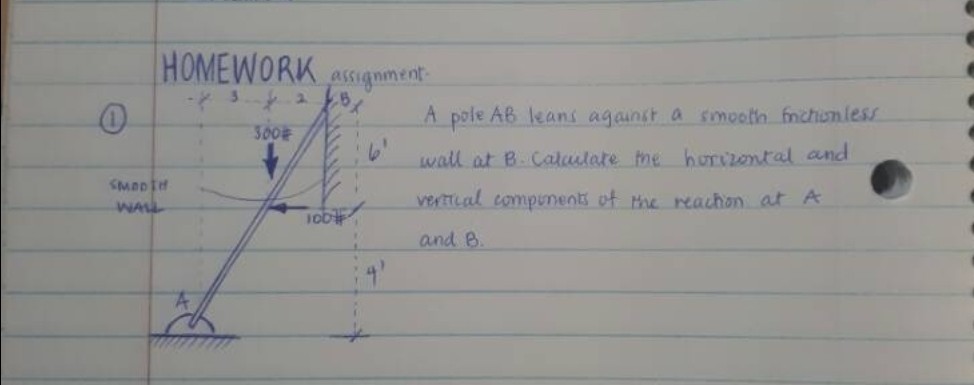 HOMEWORK assignment.
3 2 B
① A pole AB leans against a smooth frictionless
300# 6'
wall at B. Calculate the horizontal and
SMOOTH
WALL
vertical components of the reaction at A
100#
and B.
4'
A